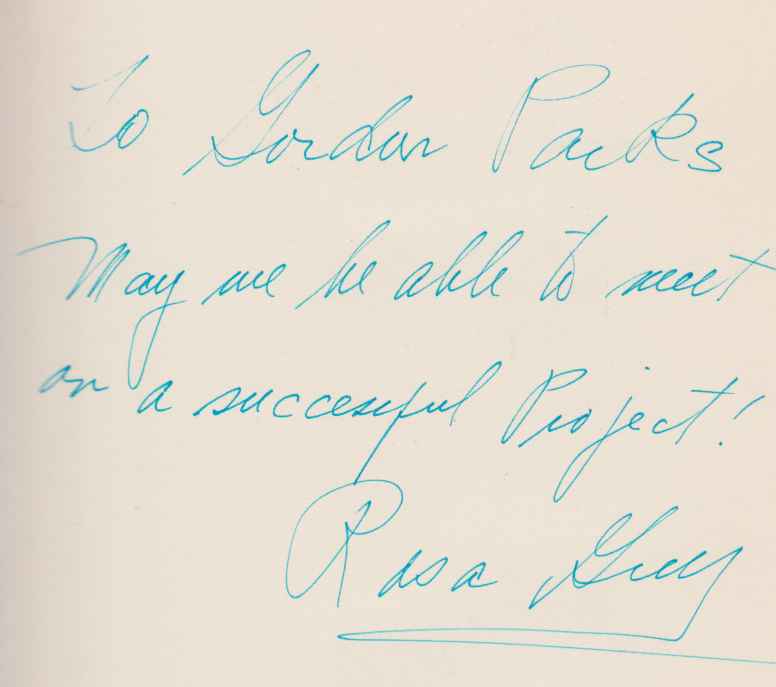 To Gordon Parks
May we be able to meet
on a succesful Project!
Rosa Guy